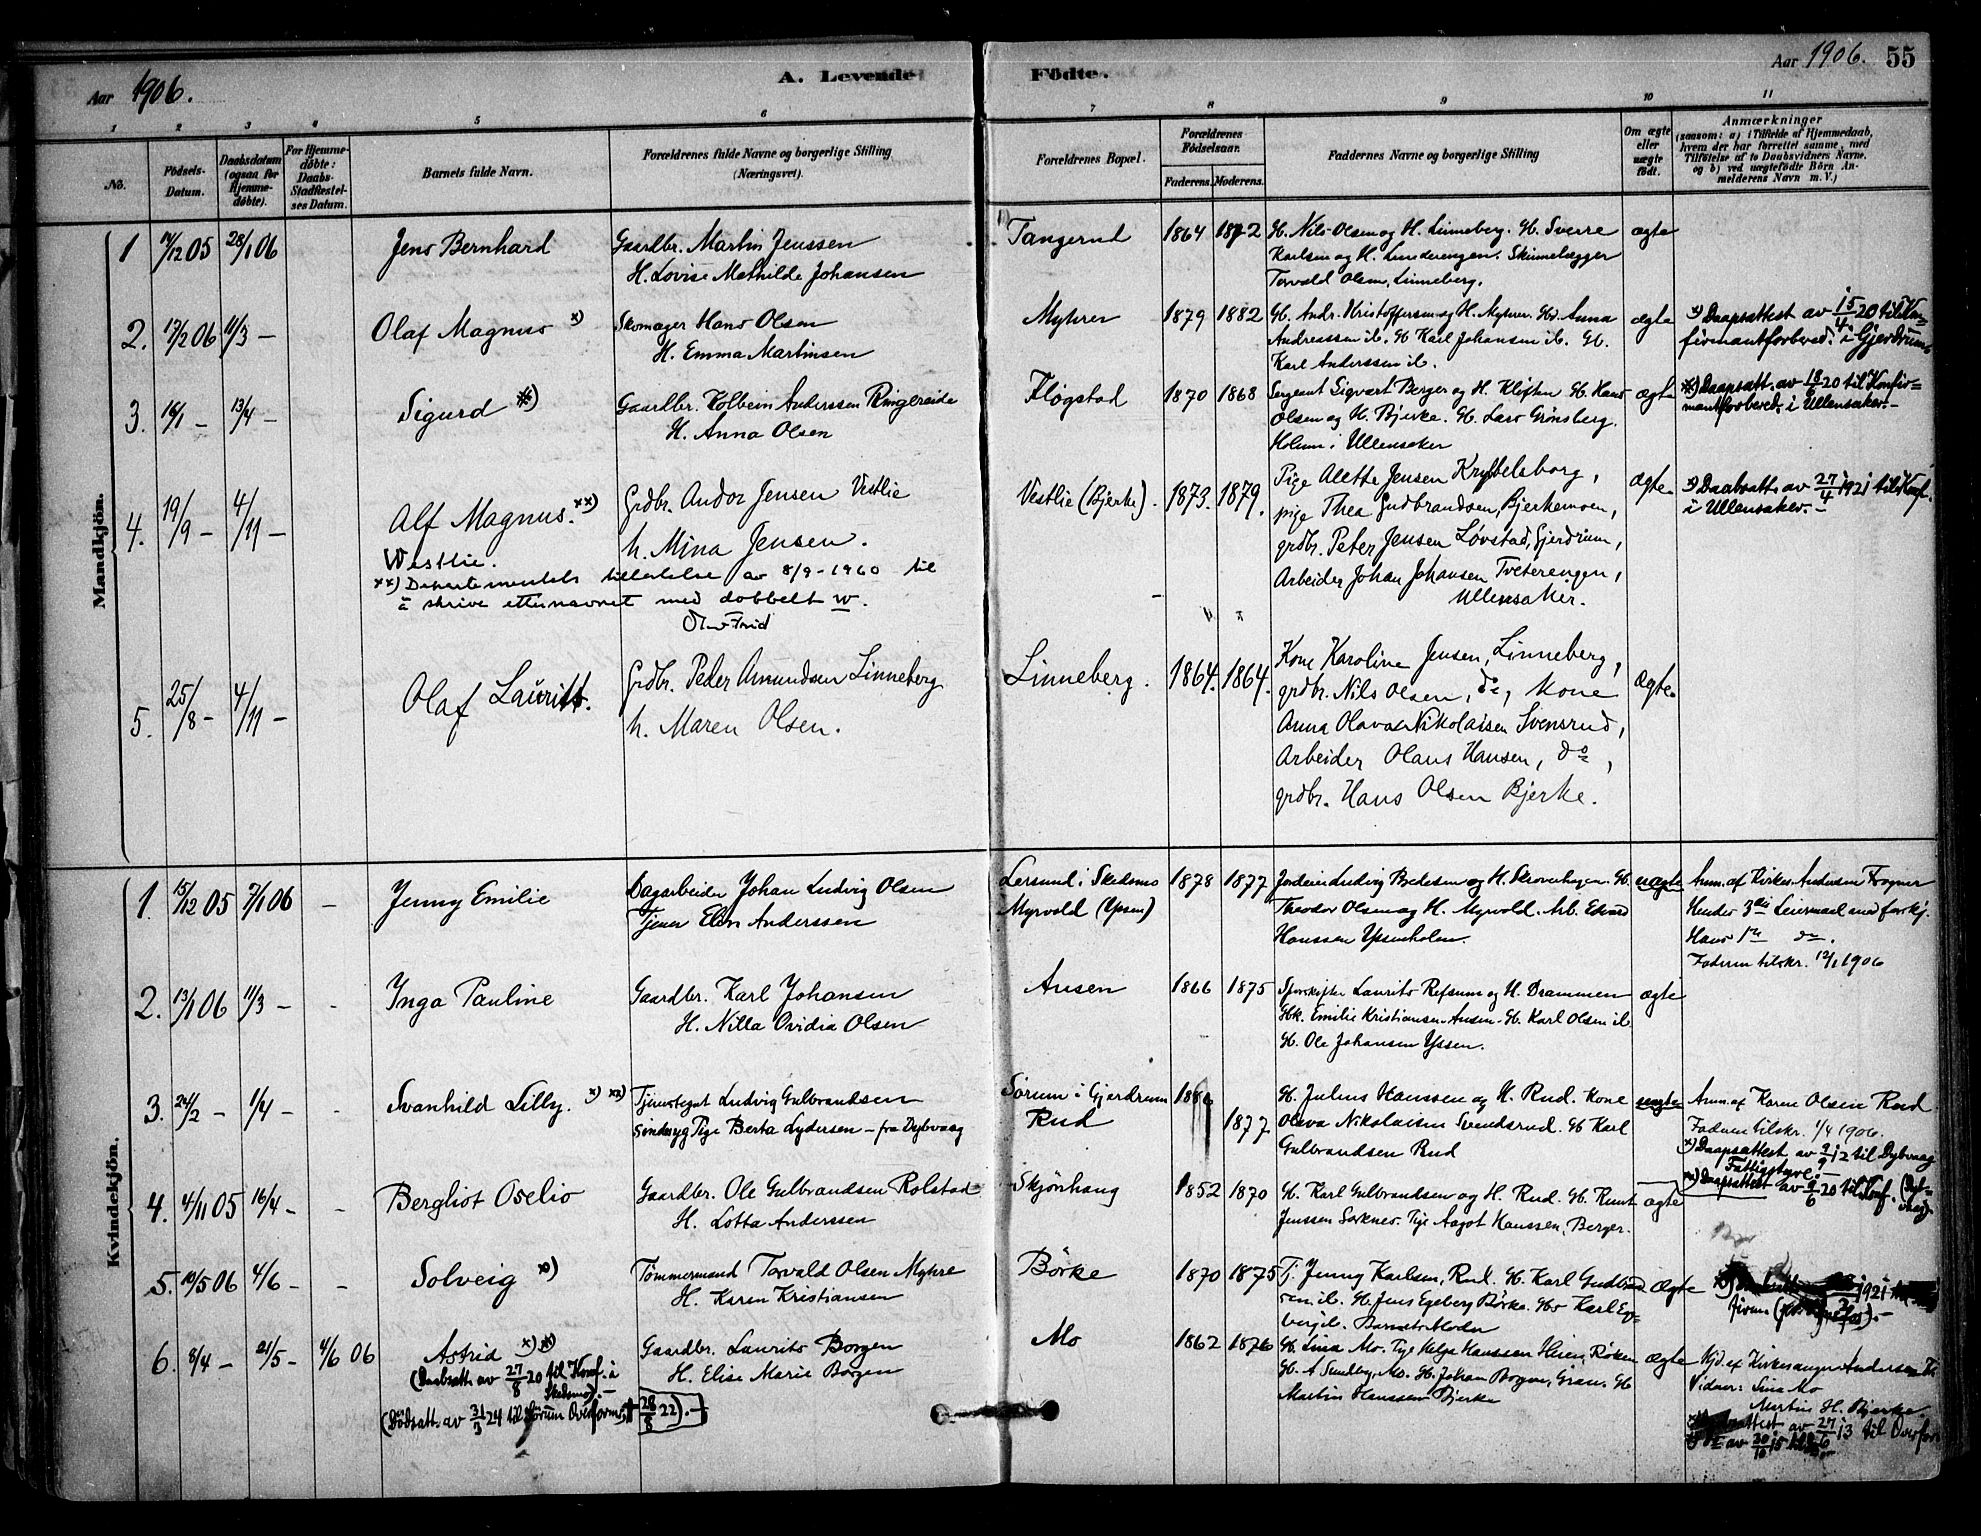 Aar 1906.
A. Levende Födte.
Aar 1906. 55
1 2 3 4 5 6 7 8 9 10 11
No.
Födsels-Datum.
Daabsdatum (ogsaa for Hjemme-döbte).
For Hjemme-döbte: Daabs-Stadfæstel-ses Datum.
Barnets fulde Navn.
Forældrenes fulde Navne og borgerlige Stilling (Næringsvei).
Forældrenes Bopæl.
Forældrenes Födselsaar.
Faderens. Moderens.
Faddernes Navne og borgerlige Stilling
Om ægte eller uægte födt.
Anmærkninger
(saasom: a) i Tilfælde af Hjemmedaab, hvem der har forrettet samme, med Tilföielse af to Daabsvidners Navne, og b) ved uægtefödte Börn An-melderens Navn m. V.)
Mandkjön.
1 14/12 05 28/1 06 Jens Bernhard
Gaardbr. Martin Jenssen
H. Lovise Mathilde Johansen
Tangerud 1864 1872
G. Nils Olsen og H. Linneberg. G. Sverre
Karlsen og H. Linderengen. Skinnelægger
Torvald Olsen, Linneberg.
ægte
2. 17/2 06 11/3 – Olaf Magnus x)
Skomager Hans Olsen
H. Emma Martinsen
Myhrer 1879 1882
G. Andr. Kristoffersen og H. Myhrer. Anna
Andreassen ib. G. Karl Johansen ib. G.
Karl Anderssen ib.
ægte
x) Daapsattest av 15/4 20 til Kon-
firmantforbered. i Gjerdrum
3. 18/1 – 13/4 – Sigurd x)
Gaardbr. Kolbein Anderssen Ringereide
H. Anna Olsen
Fløgstad 1870 1868
Sergeant Sigvart Berger og H. Kløften G. Hans
Olsen og H. Bjerke. G. Lars Grønsberg.
Holum i Ullensaker
ægte
x) Daapsatt. av 18/6 20 til Konfir-
mantforbered. i Ullensaker. –
4. 19/9 – 4/11 – Alf Magnus. xx)
Westlie.
Grdbr. Andor Jensen Vestlie
h. Mina Jensen.
xx) Departementets tillatelse av 8/9-1960 til
å skrive etternavnet med dobbelt w.
Vestlie (Bjerke). 1873. 1879.
Pige Alette Jensen Krybbelsborg,
pige Thea Gudbrandsen, Bjerkemoen,
grdbr. Peter Jensen Løvstad, Gjerdrum,
Arbeider Johan Johansen Tveterengen,
Ullensaker.
ægte
x) Daabsatt. av 27/4 1921 til Konf.
i Ullensaker. –
5. 25/8 – 4/11 – Olaf Lauritz.
Grdbr. Peder Amundsen Linneberg
h. Maren Olsen.
Linneberg. 1864. 1864.
Kone Karoline Jensen, Linneberg,
grdbr. Nils Olsen, do, Kone
Anna Olava Nikolaisen Svensrud,
Arbeider Olaus Hansen, do,
grdbr. Hans Olsen Bjerke.
ægte
Kvindekjön.
1. 15/12 05 7/1 06 – Jenny Emilie
Dagarbeider Johan Ludvig Olsen
Tjener Elen Anderssen
Lersund i Skedsmo
Myrvold (Ypsen)
1878 1877
Ludvig Bedesen og H. Skovenhagen. G.
Theodor Olsen og H. Myrvold. Arb. Edvard
Hanssen Yssenholm.
uægte
Anm. af Kirkes. Andersen Frogner
Hendes 3die Leiermaal med forskj.
Hans 1ste do.
Faderen tilskr. 12/1 1906
2. 13/1 06 11/3 – – Inga Pauline
Gaardbr. Karl Johansen
H. Nilla Ovidia Olsen
Ausen 1866 1875
Sporskifter Laurits Refsum og H. Drammen
Gbk. Emilie Kristiansen Ausen. G. Karl Olsen ib.
G. Ole Johansen Yssen.
ægte
3. 24/2 – 1/4 – – Svanhild Lilly. x) xx)
Tjenestegut Ludvig Gulbrandsen
Sindssyg Pige Berta Lydersen – fra Dybvaag
Sørum i Gjerdrum
Rud
1877
G. Julius Hanssen og H. Rud. Kone
Olava Nikolaisen Svendsrud. G. Karl
Gulbrandsen Rud
uægte
Anm. af Karen Olsen Rud.
Faderen tilskr. 1/4 1906.
x) Daapsattest av 2/9 12 til Dybvaag
Fattigstyre. –
xx) Daapsattest av 2/6 20 til Konf. (Dyb-
vaag).
4. 4/11 05 16/4 – – Bergliot Oselio
Gaardbr. Ole Gulbrandsen Rolstad
H. Lotta Anderssen
Skjønhaug 1852 1870
G. Karl Gulbrandsen og H. Rud. G. Knut
Jenssen Sørknes. Pige Aagot Hanssen, Berger.
ægte
5. 10/5 06 4/6 – – Solveig x)
Tømmermand Torvald Olsen Myhre
H. Karen Kristiansen
Børke 1870 1875
Tj. Jenny Karlsen, Rud. G. Karl Gudbrand-
sen ib. G. Jens Egeberg Børke. Karl Eg-
berg ib. Barnets Moder
ægte
1921
6. 8/4 – 21/5 – 4/6 06 Astrid x) x)
(Daabsatt. av 27/8 20 til Konf. i
Skedsmo). –
(Dödsatt. av 31/3 24 til Sørum Overform.
28/8 22). –
Gaardbr. Laurits Borgen
H. Elise Marie Borgen
Mo 1862 1876
G. Lina Mo. Pige Helga Hanssen
G. A Sundby, Mo. G. Johan Borgen, Grau. G.
Martin Hanssen Bjerke
ægte
Hjd. af Kirkesanger Andersen
Vidner: Lina Mo
Martin H. Bjerke
av 27/6 13 til Overfor
av 30/10 15